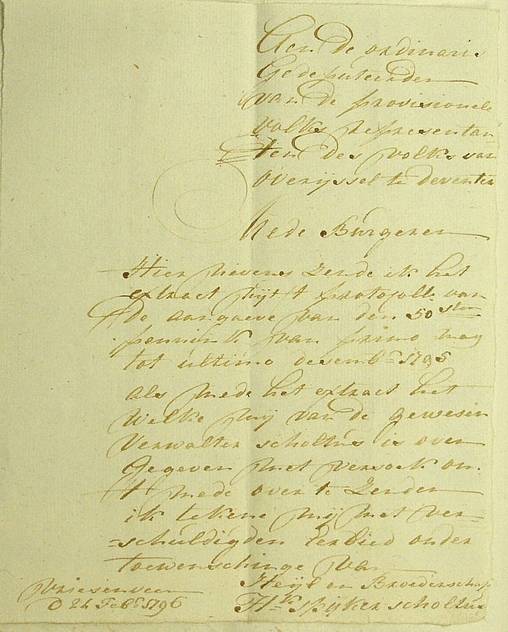 Aen de ordinaris
Gedeputeerden
van de provisionele
volks representan-
ten des volks van
overijssel te deventer
Mede Burgeren
Hier nevens Zende ik het
extract uijt 't protocoll van
de aangaeve van den 50sten
pennink van primo may
tot ultimo decembr 1795
als mede het extract het
welke mij van de gewesen
verwalter scholtus is over
gegeven met versoek om
't mede over te Zenden
ik tekene mij met ver-
=schuldigden Eerbied onder
toewenschinge van
Heijl en Broederschap
Hk spijker scholtus
vriesenveen
D 24 Febr 1796